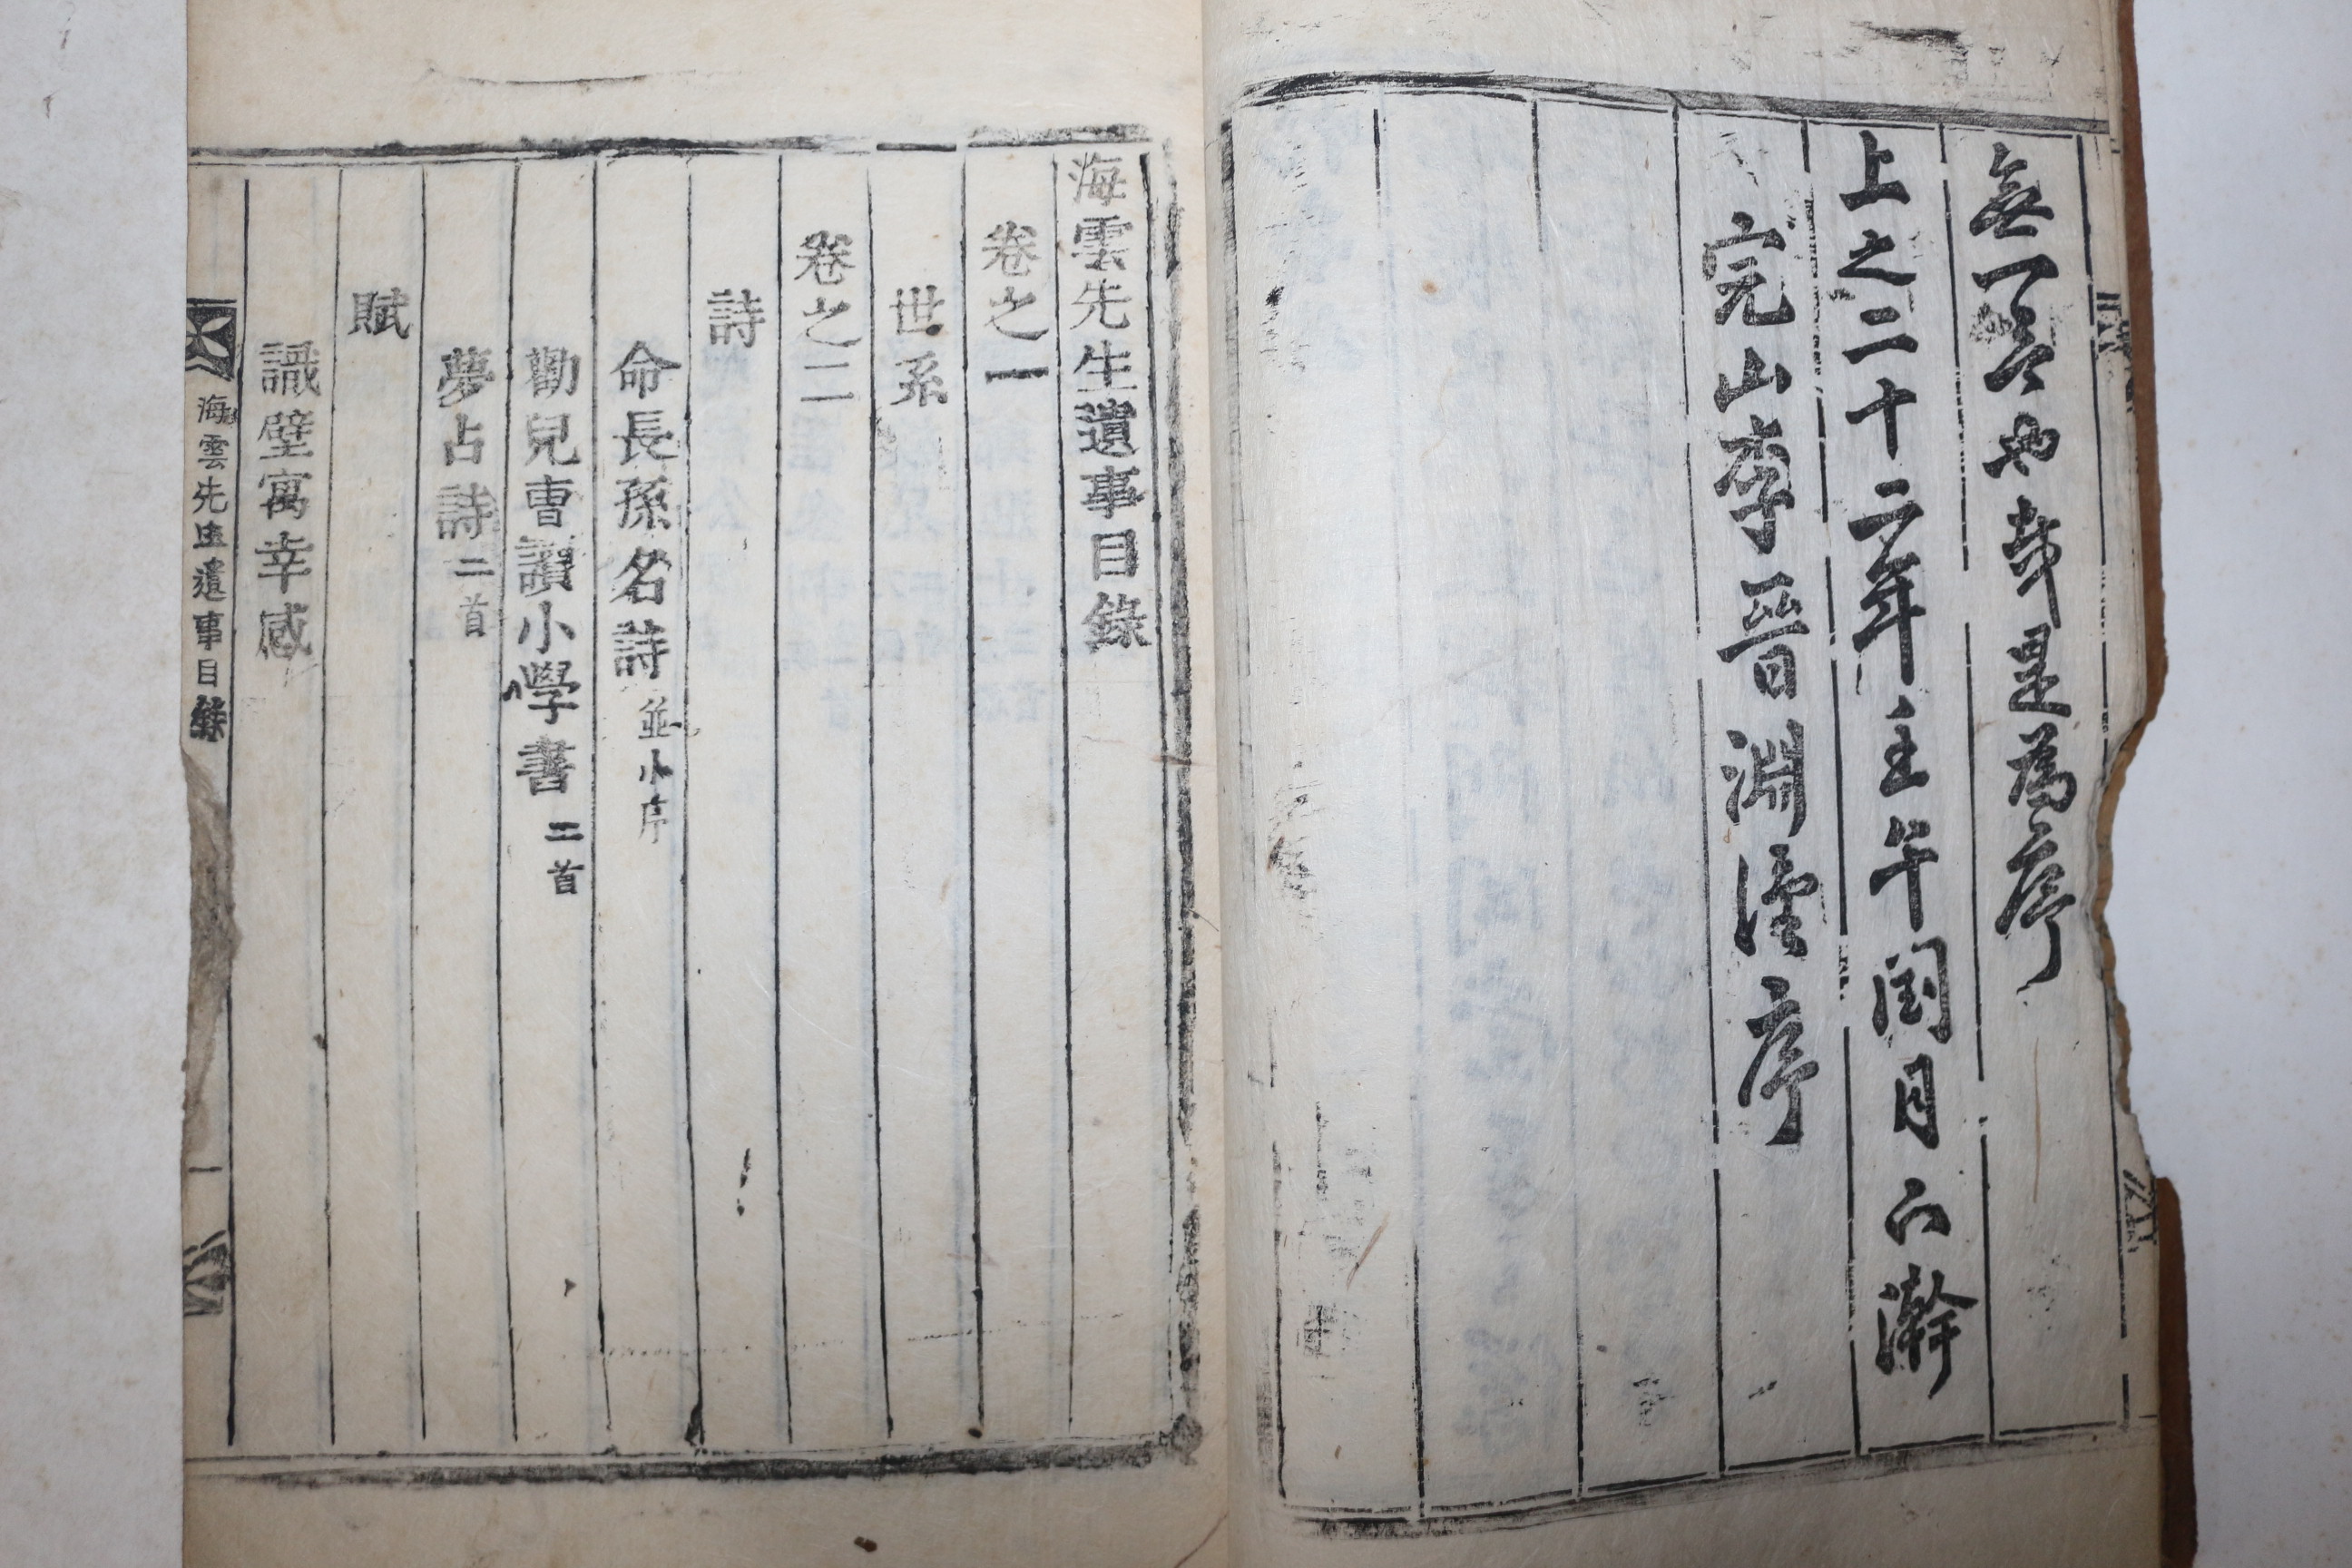 無一言也哉是爲序
上之二十二年壬午閏月下澣
完山李晉淵謹序
海雲先生遺事目錄
卷之一
世系
卷之二
詩
命長孫名詩 並小序
勸兒曹讀小學書 二首
夢占詩 二首
賦
識壁寓幸感
海雲先生遺事目錄 一